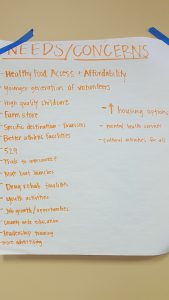 NEEDS/CONCERNS
- Healthy Food Access + Affordability
- Younger generation of volunteers
- High quality childcare
- Farm store
- Specific destination - tourism
- Better athletic facilities
- 529
- Trails to interconnect
- boat launches
- Drug rehab facilities
- youth activities
- Job growth/opportunities
- County wide education
- leadership training
- more advertising
- ↑ housing options
- mental health services
- cultural activities for all